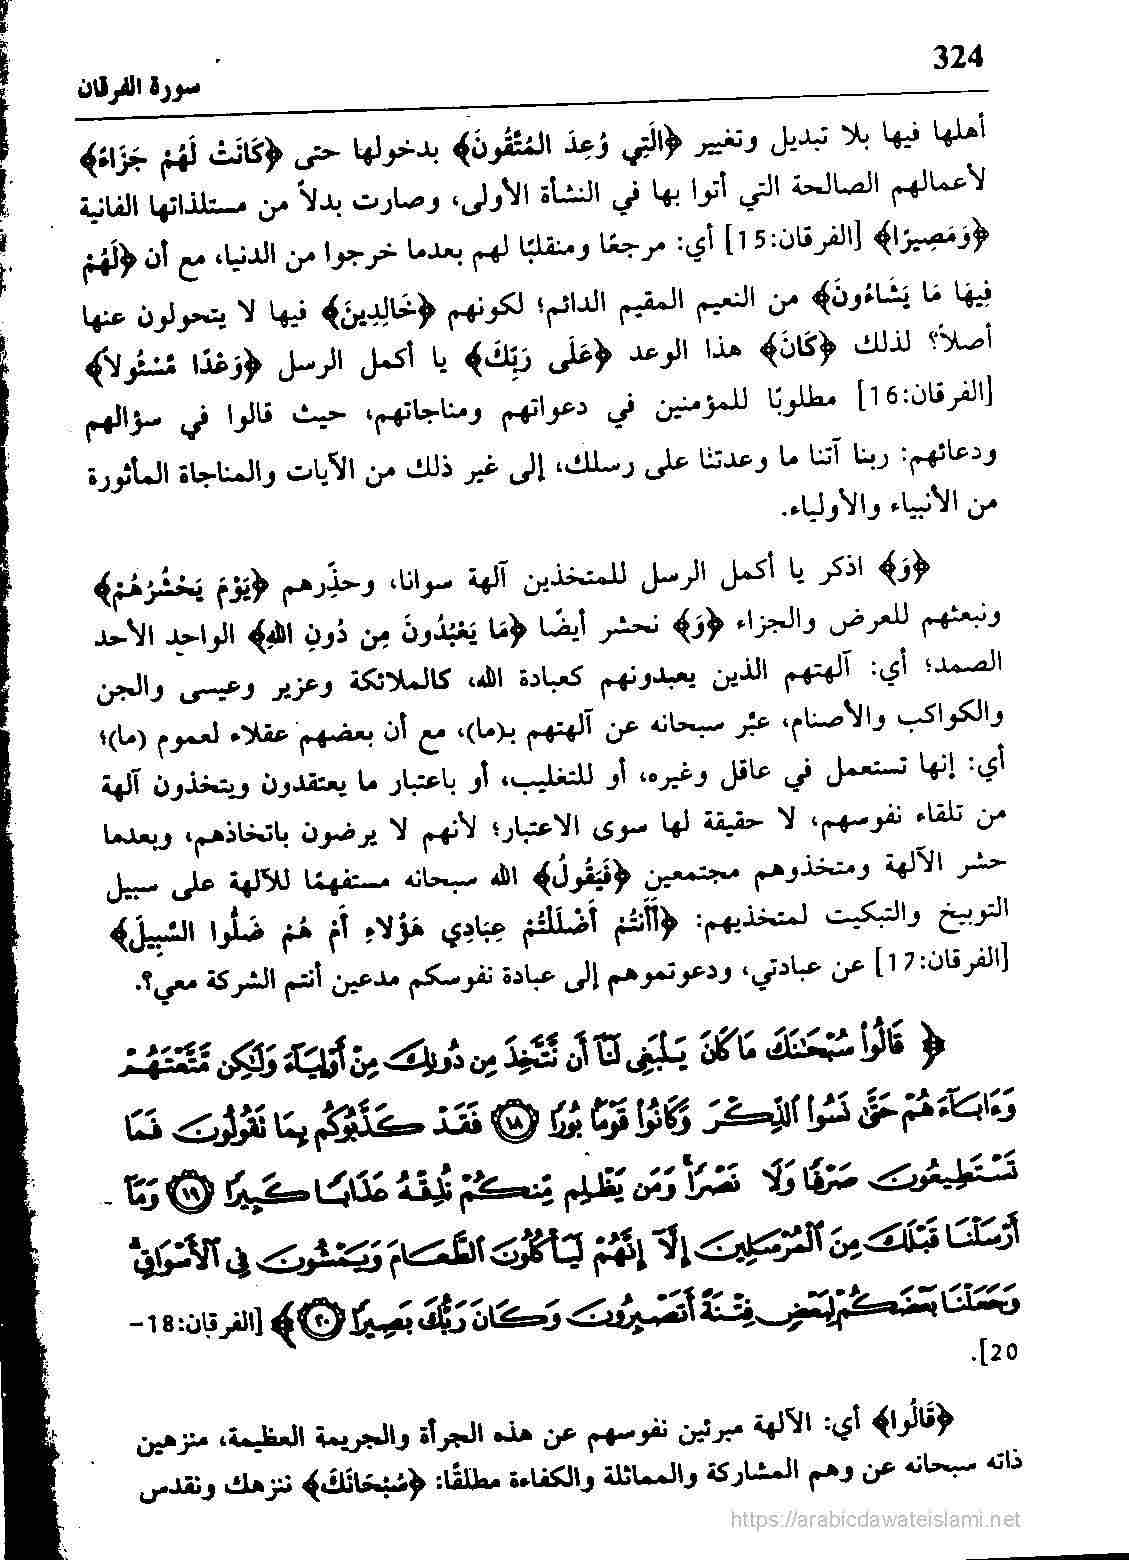 324
سورة الفرقان
أهلها فيها بلا تبديل وتغيير ﴿الَّتِي وُعِدَ المُتَّقُونَ﴾ بدخولها حتى ﴿كَانَتْ لَهُمْ جَزَاءً﴾
لأعمالهم الصالحة التي أتوا بها في النشأة الأولى، وصارت بدلاً من مستلذاتها الفانية
﴿وَمَصِيرًا﴾ [الفرقان:15] أي: مرجعًا ومنقلبًا لهم بعدما خرجوا من الدنيا، مع أن ﴿لَهُمْ
فِيهَا مَا يَشَاءُونَ﴾ من النعيم المقيم الدائم؛ لكونهم ﴿خَالِدِينَ﴾ فيها لا يتحولون عنها
أصلاً؟ لذلك ﴿كَانَ﴾ هذا الوعد ﴿عَلَى رَبِّكَ﴾ يا أكمل الرسل ﴿وَعْدًا مَّسْئُولاً﴾
[الفرقان:16] مطلوبًا للمؤمنين في دعواتهم ومناجاتهم، حيث قالوا في سؤالهم
ودعائهم: ربنا آتنا ما وعدتنا على رسلك، إلى غير ذلك من الآيات والمناجاة المأثورة
من الأنبياء والأولياء.
﴿وَ﴾ اذكر يا أكمل الرسل للمتخذين آلهة سوانا، وحذِّرهم ﴿يَوْمَ يَحْشُرُهُمْ﴾
ونبعثهم للعرض والجزاء ﴿وَ﴾ نحشر أيضًا ﴿مَا يَعْبُدُونَ مِن دُونِ اللهِ﴾ الواحد الأحد
الصمد؛ أي: آلهتهم الذين يعبدونهم كعبادة الله، كالملائكة وعزير وعيسى والجن
والكواكب والأصنام، عبَّر سبحانه عن آلهتهم بـ(ما)، مع أن بعضهم عقلاء لعموم (ما)؛
أي: إنها تستعمل في عاقل وغيره، أو للتغليب، أو باعتبار ما يعتقدون ويتخذون آلهة
من تلقاء نفوسهم، لا حقيقة لها سوى الاعتبار؛ لأنهم لا يرضون باتخاذهم، وبعدما
حشر الآلهة ومتخذوهم مجتمعين ﴿فَيَقُولُ﴾ الله سبحانه مستفهمًا للآلهة على سبيل
التوبيخ والتبكيت لمتخذيهم: ﴿أَأَنتُمْ أَضْلَلْتُمْ عِبَادِي هَؤُلاءِ أَمْ هُمْ ضَلُّوا السَّبِيلَ﴾
[الفرقان:17] عن عبادتي، ودعوتموهم إلى عبادة نفوسكم مدعين أنتم الشركة معي؟.
﴿ قَالُواْ سُبْحَـٰنَكَ مَا كَانَ يَنۢبَغِى لَنَآ أَن نَّتَّخِذَ مِن دُونِكَ مِنْ أَوْلِيَآءَ وَلَـٰكِن مَّتَّعْتَهُمْ
وَءَابَآءَهُمْ حَتَّىٰ نَسُواْ ٱلذِّكْرَ وَكَانُواْ قَوْمًۢا بُورًا ۝١٨ فَقَدْ كَذَّبُوكُم بِمَا تَقُولُونَ فَمَا
تَسْتَطِيعُونَ صَرْفًا وَلَا نَصْرًا ۚ وَمَن يَظْلِم مِّنكُمْ نُذِقْهُ عَذَابًا كَبِيرًا ۝١٩ وَمَآ
أَرْسَلْنَا قَبْلَكَ مِنَ ٱلْمُرْسَلِينَ إِلَّآ إِنَّهُمْ لَيَأْكُلُونَ ٱلطَّعَامَ وَيَمْشُونَ فِى ٱلْأَسْوَاقِ ۗ
وَجَعَلْنَا بَعْضَكُمْ لِبَعْضٍ فِتْنَةً أَتَصْبِرُونَ ۗ وَكَانَ رَبُّكَ بَصِيرًا ۝٢٠﴾ [الفرقان:18-
20].
﴿قَالُوا﴾ أي: الآلهة مبرئين نفوسهم عن هذه الجرأة والجريمة العظيمة، منزهين
ذاته سبحانه عن وهم المشاركة والمماثلة والكفاءة مطلقًا: ﴿سُبْحَانَكَ﴾ ننزهك ونقدس
https://arabicdawateislami.net